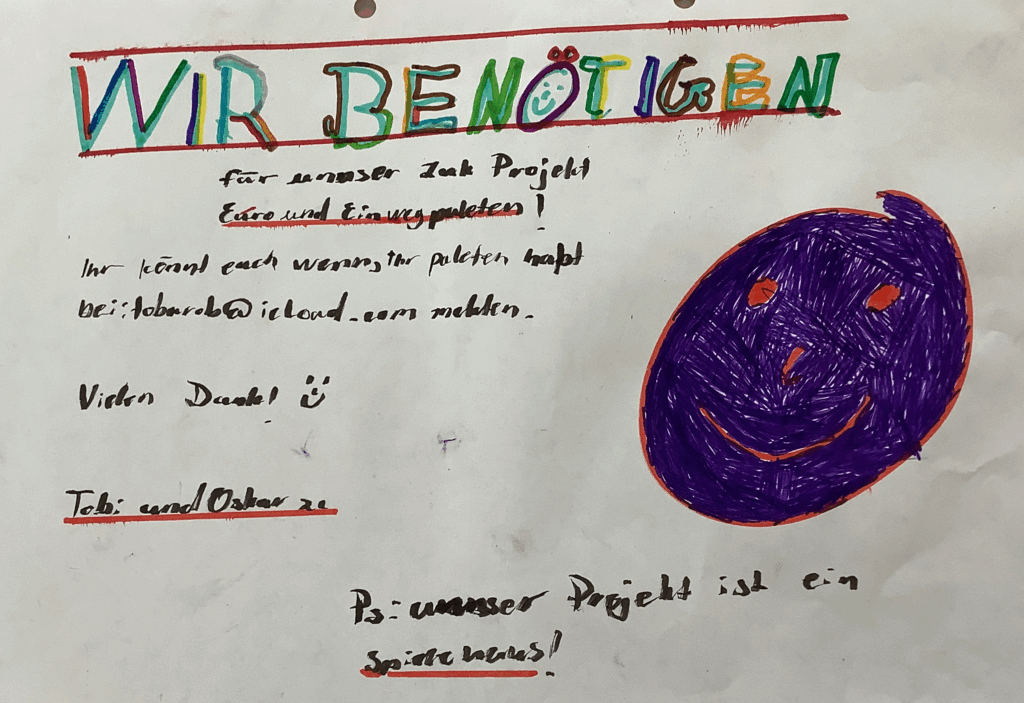 WIR BENÖTIGEN
für unser Projekt
Euro und Einweg paleten!
Ihr könnt euch wenns ihr paleten habt
bei: @icloud.com melden.
Vielen Dank!
Tobi und Oskar
Ps: unser Projekt ist ein